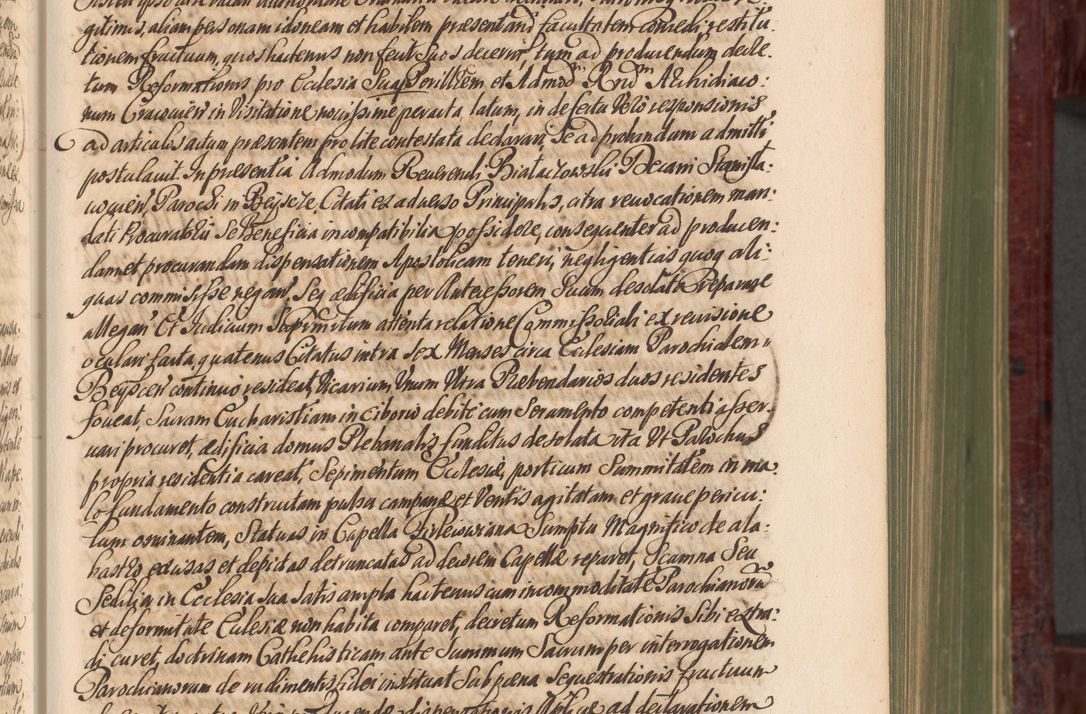 gitimus, aliam personam idoneam et habilem praesentandi facultatem concedi, restitu-
tionem fructuum, quos hactenus non fecit suos decerni, tum ad producendum decre-
tum Reformationis pro Ecclesia sua Perillrem et Admod. Rndm Archidiaco:
num Cracovien in Visitatione novissime peracta latum, in defectu vero responsionis
ad articulos actum praesentem pro lite contestata declarari, Se ad probandum admitti
postulavit. In praesentia Admodum Reverendi Białaczowski Decani Stanisla:
uouien, Parochi in Beysce, Citati ex adverso Principalis, citra revocationem man-
dati Procuratorii Se Beneficia incompatibilia possidere, consequenter ad producen:
dam et procurandam dispensationem Apostolicam teneri, negligentias quoq ali:
quas commisisse negan, Seq ædificia per Antecessorem Suum desolata reparare
allegan Et Judicium Suprmitum attenta relatione Commissoriali ex revisione
oculari facta, quatenus Citatus intra Sex Menses circa Ecclesiam Parochialem
Beyscen continuo resideat, Vicarium, Unum Ultra Præbendarios duos residentes
foveat, Sacram Eucharistiam in ciborio debite cum Seramento competenti asser-
vari procuret, ædificia domus Plebanalis funditus desolata ita Ut Parochus
propria residentia careat, Sepimentum Ecclesiæ, porticum Summitatem in ma
lo fundamento constructam pulsu campanæ et Ventis agitatam et grave pericu:
lum ominantem, Statuas in Capella Firleiowiana Sumptu Magnifico de ala:
bastro excisas et depictas detruncatas ad decorem Capellæ reparet, Scamna Seu
Sedilia in Ecclesia sua satis ampla hactenus cum incommoditate Parochianorum
et deformitate Ecclesiæ non habita comparet, decretum Reformationis Sibi extra:
di curet, doctrinam Cathehisticam ante Summum Sacrum per interrogationem
Parochianorum de rudimentis fidei instituat sub pæna Sequestrationis fructuum
dispensationis Aplicæ ad declarationem